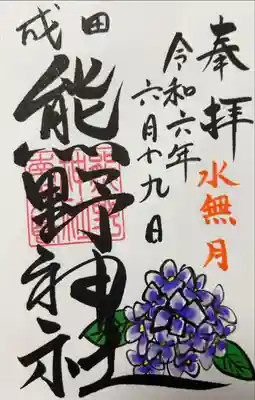 奉拝
水無月
令和六年
六月十九日
成田
熊野神社